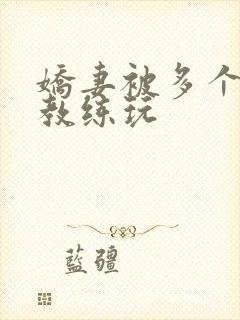 嬌妻被多个
教练玩
藍疆